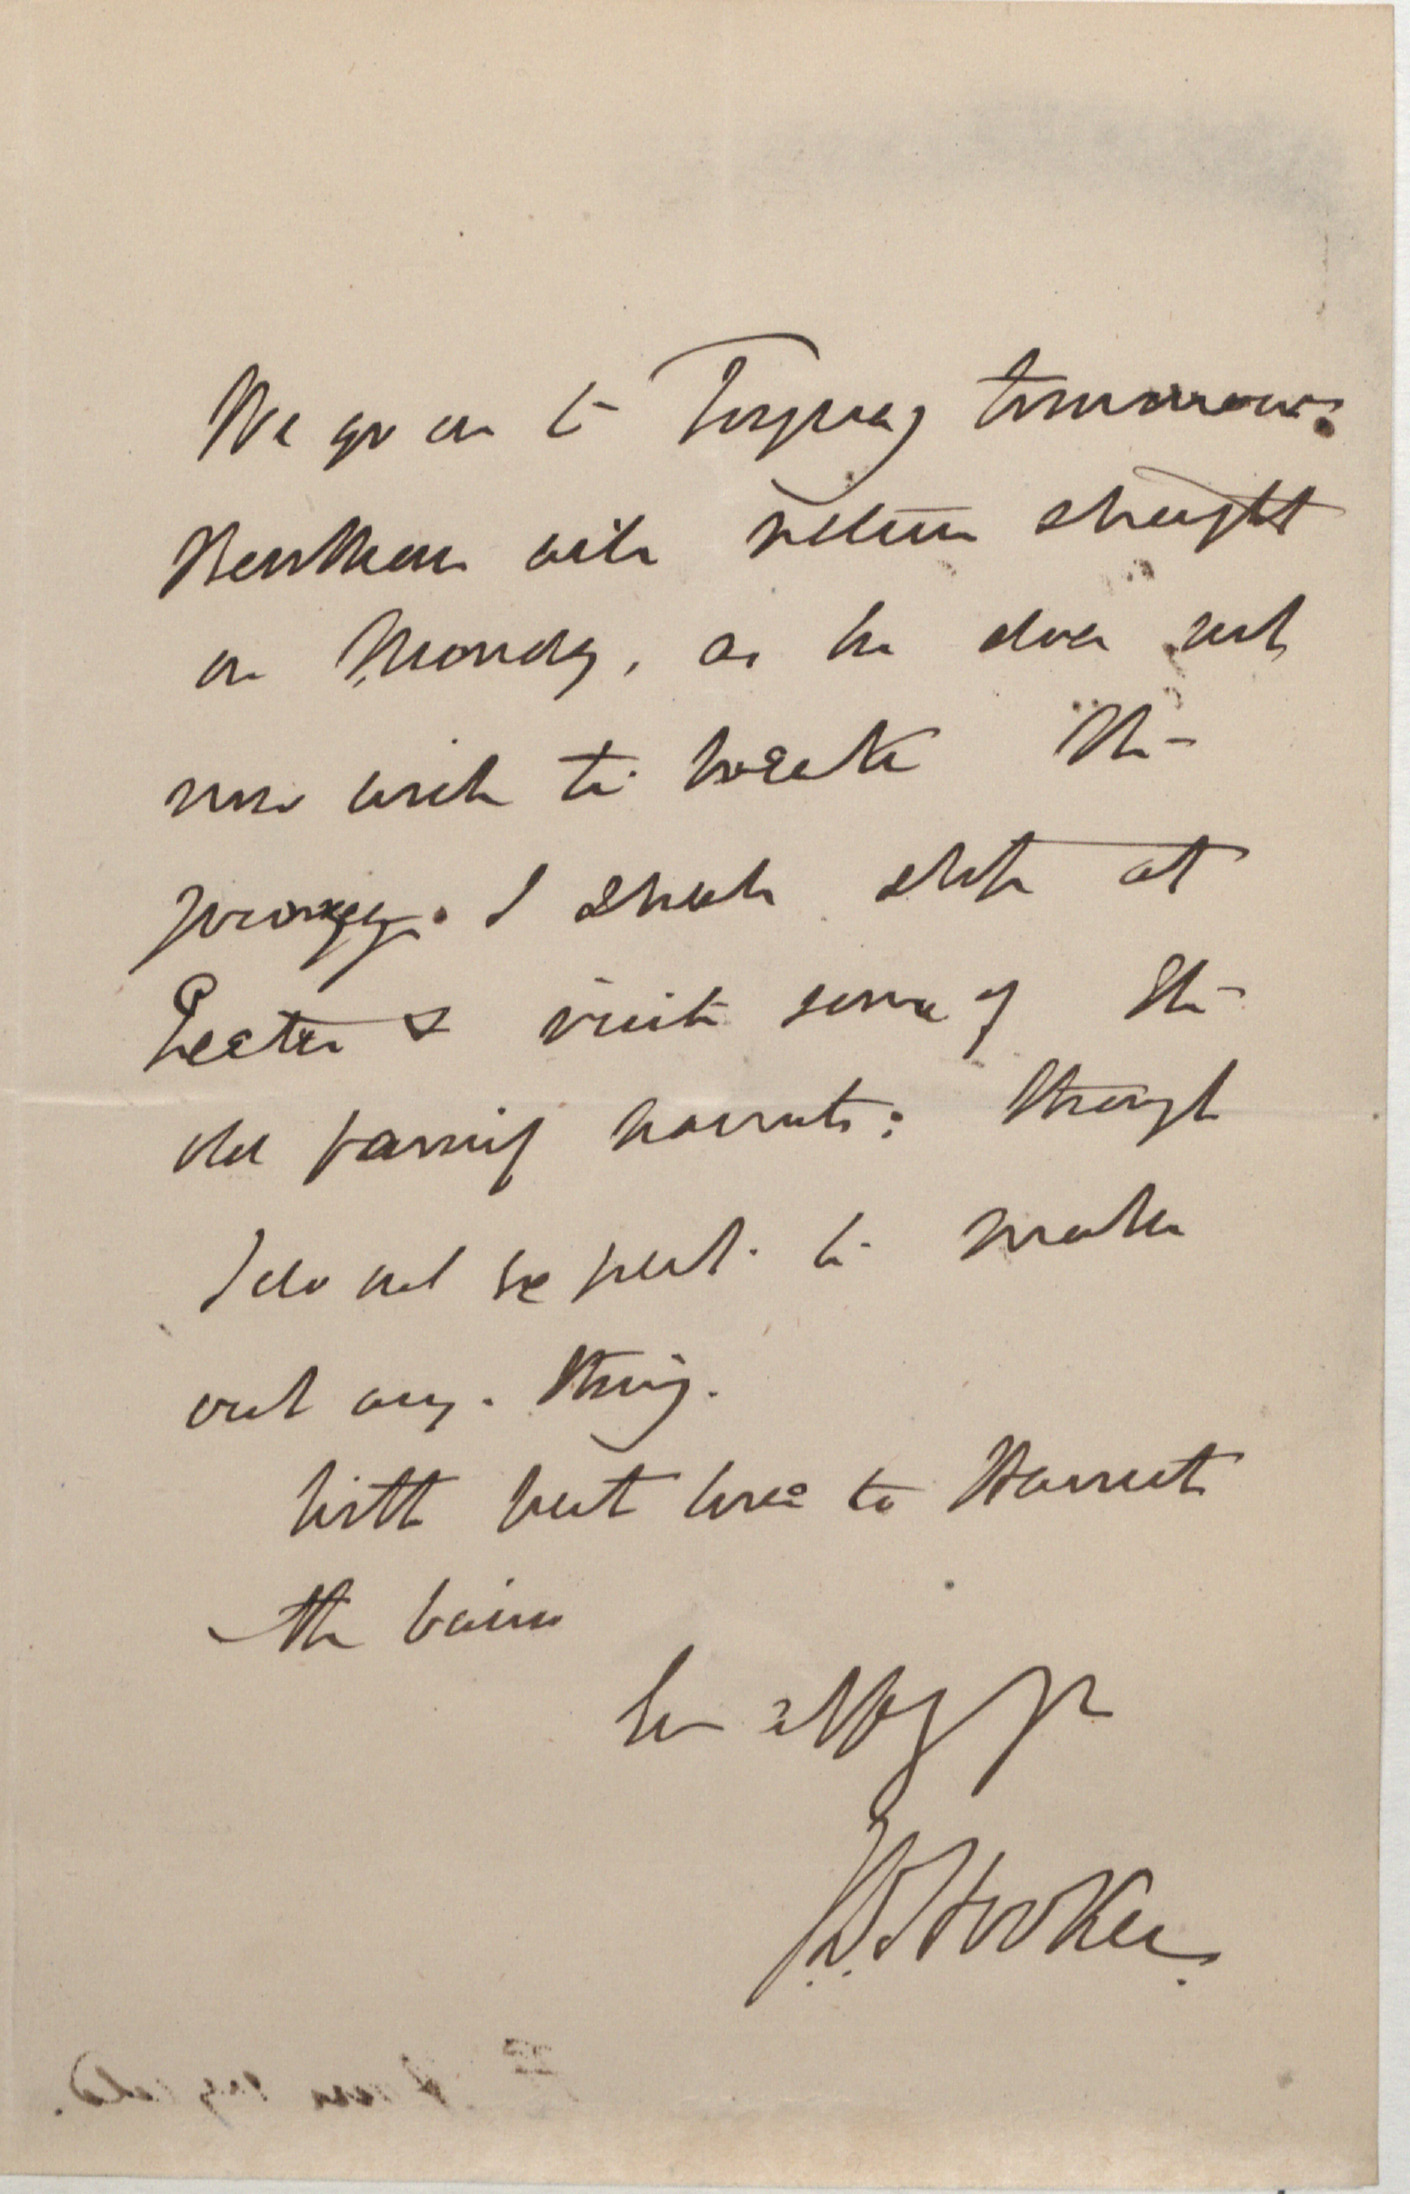 We go on to Torquay tomorrow.
will return straight
on Monday, as he does not
now wish to break the
journey. I shall stop at
Exeter & visit some of the
old family haunts: though
I do not expect to make
out any-thing.
With best love to Harriet
the bairns
Ever affy yrs
J.D. Hooker.